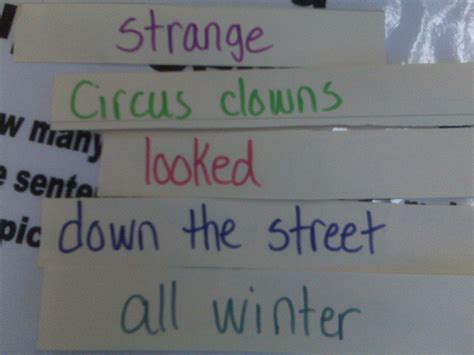 strange
Circus clowns
w many
looked
e sente
down the street
pic
all winter